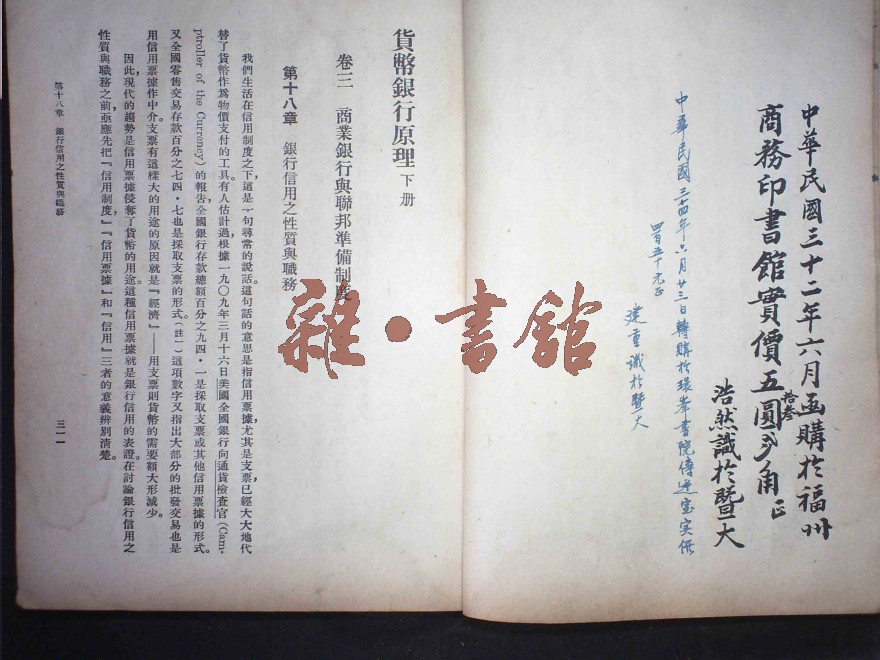 中華民國三十二年六月函購於福州
商務印書館實價五圓拾叁
角正
浩然識於暨大
中華民國三十四年六月廿三日轉購於環峯書院
四百五十元正
建重識於暨大
貨幣銀行原理 下册
卷三 商業銀行與聯邦準備制度
第十八章 銀行信用之性質與職務
我們生活在信用制度之下,這是一句尋常的說話。這句話的意思是指信用票據,尤其是支票,已經大大地代
替了貨幣作為物價支付的工具。有人估計過,根據一九〇九年三月十六日美國全國銀行向通貨檢查官(Com-
ptroller of the Currency)的報告,全國銀行存款總額百分之九四·一是採取支票或其他信用票據的形式。
又全國零售交易存款百分之七四·七也是採取支票的形式。(註一)這項數字又指出大部分的批發交易也是
用信用票據作中介。支票有這樣大的用途的原因就是『經濟』——用支票則貨幣的需要額大形減少。
因此,現代的趨勢是信用票據侵奪了貨幣的用途,這種信用票據就是銀行信用的表證。在討論銀行信用之
性質與職務之前,亟應先把『信用制度』『信用票據』和『信用』三者的意義辨別清楚。
第十八章 銀行信用之性質與職務
三一一
雜·書館